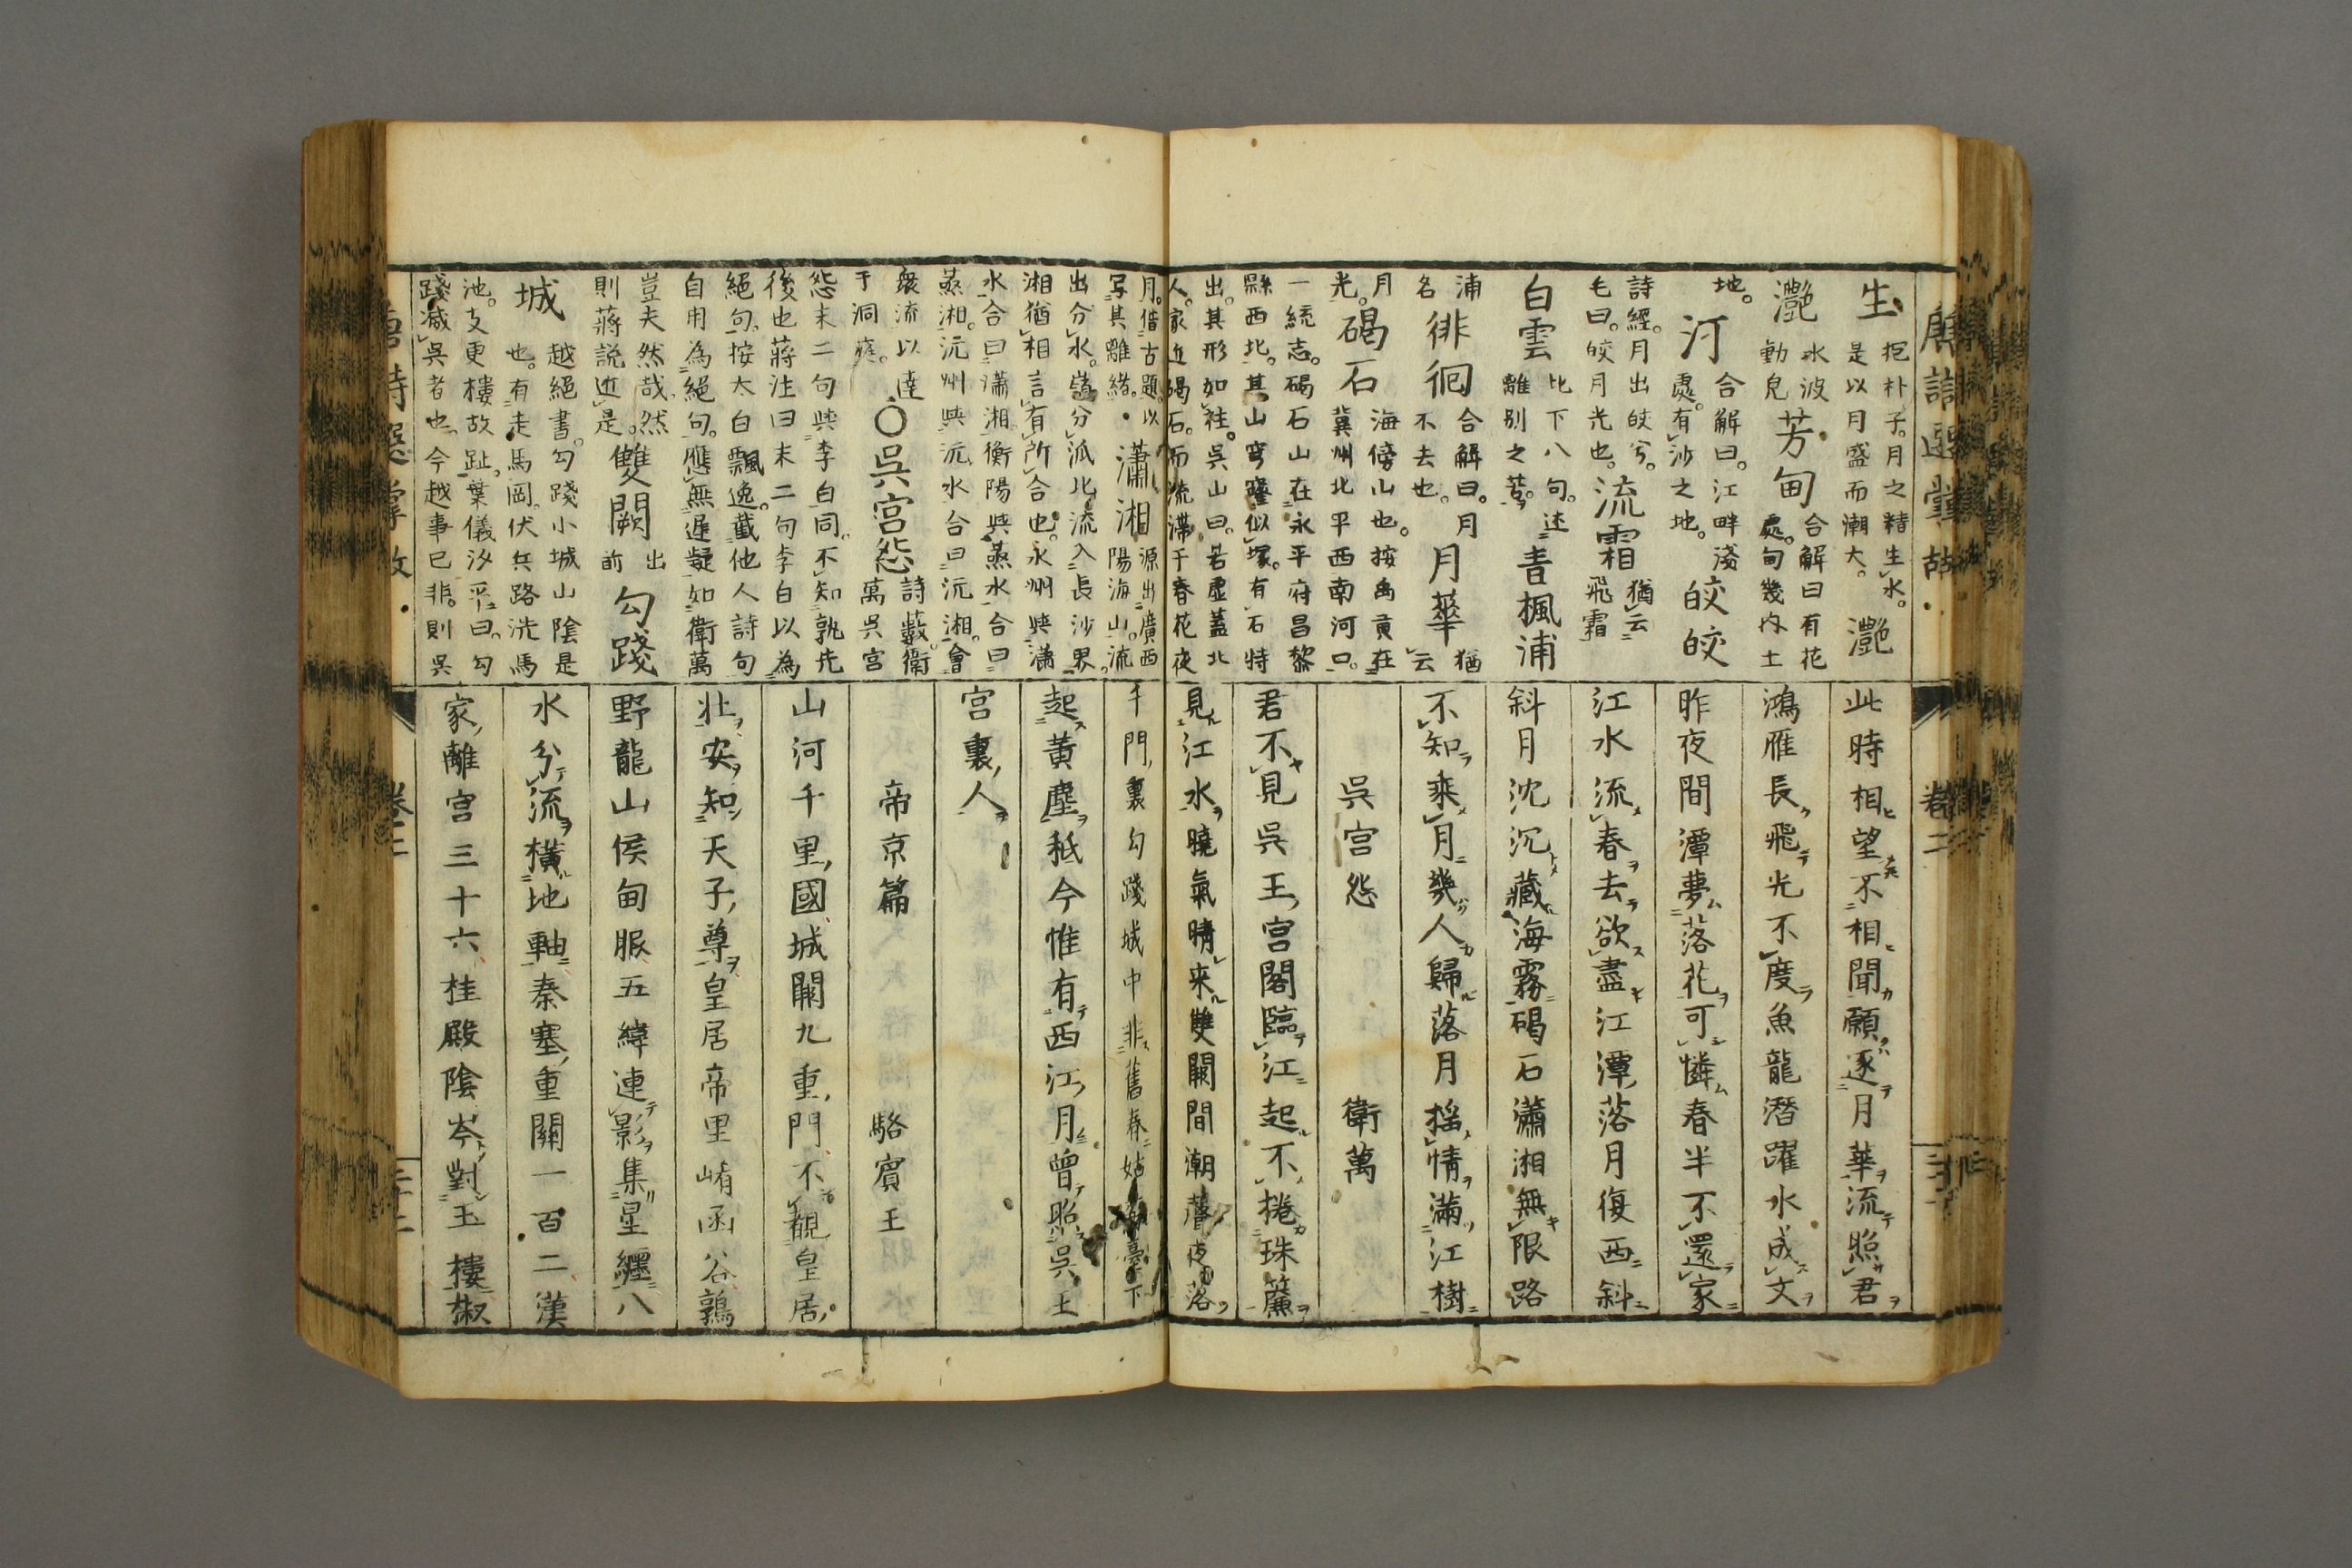 唐詩選掌故
卷二
生 抱朴子。月之精生水。
是以月盛而潮大。 灔
灔 水波
動皃 芳甸 合解曰有花
處。甸畿内土
地。 汀 合解曰。江畔淺
處。有沙之地。 皎皎
詩經。月出皎兮。
毛曰。皎月光也。 流霜 猶云
飛霜
白雲 比下八句。述
離別之苦。 青楓浦
浦
名 徘徊 合解曰。月
不去也。 月華 猶
云
月
光。 碣石 海傍山也。按禹貢在
冀州北平西南河口。
一統志。碣石山在永平府昌黎
縣西北。其山穹窿似塚。有石特
出。其形如柱。吳山曰。若虛蓋北
人。家近碣石。而流滯于春花夜
此時相望不相聞願逐月華流照君
鴻雁長飛光不度魚龍潛躍水成文
昨夜間潭夢落花可憐春半不還家
江水流春去欲盡江潭落月復西斜
斜月沈沉藏海霧碣石瀟湘無限路
不知乘月幾人歸落月搖情滿江樹
吳宮怨 衛萬
君不見吳王宮閣臨江起不捲珠簾
見江水曉氣晴来雙闕間潮聲夜落
月。借古題。以
写其離緒。 瀟湘 源出廣西
陽海山。流
出分水。嶺分泒北流入長沙界。
湘猶相言有所合也。永州與瀟
水合曰瀟湘。衡陽與蒸水合曰
蒸湘。沅州與沅水合曰沅湘。會
衆流以達
于洞庭。 ○吳宮怨 詩藪。衛
萬吳宮
怨末二句與李白同。不知孰先
後也蔣注曰末二句李白以為
絕句。按太白飄逸。截他人詩句
自用為絕句。應無遲疑如衛萬
豈夫然哉。然
則蔣説近是。 雙闕 出
前 勾踐
城 越絕書。勾踐小城山陰是
也。有走馬岡。伏兵路洗馬
池。支更樓故趾。葉儀汐 曰。勾
踐減吳者也。今越事已非。則吳
千門裏勾踐城中非舊春姑 臺下
起黃塵秖今惟有西江月曾照吳王
宮裏人
帝京篇 駱賓王
山河千里國城闕九重門不覩皇居
壯安知天子尊皇居帝里崤函谷鶉
野龍山侯甸服五緯連影集星纏八
水分流橫地軸秦塞重關一百二漢
家離宮三十六桂殿陰岑對玉樓椒
唐詩選掌故
卷二